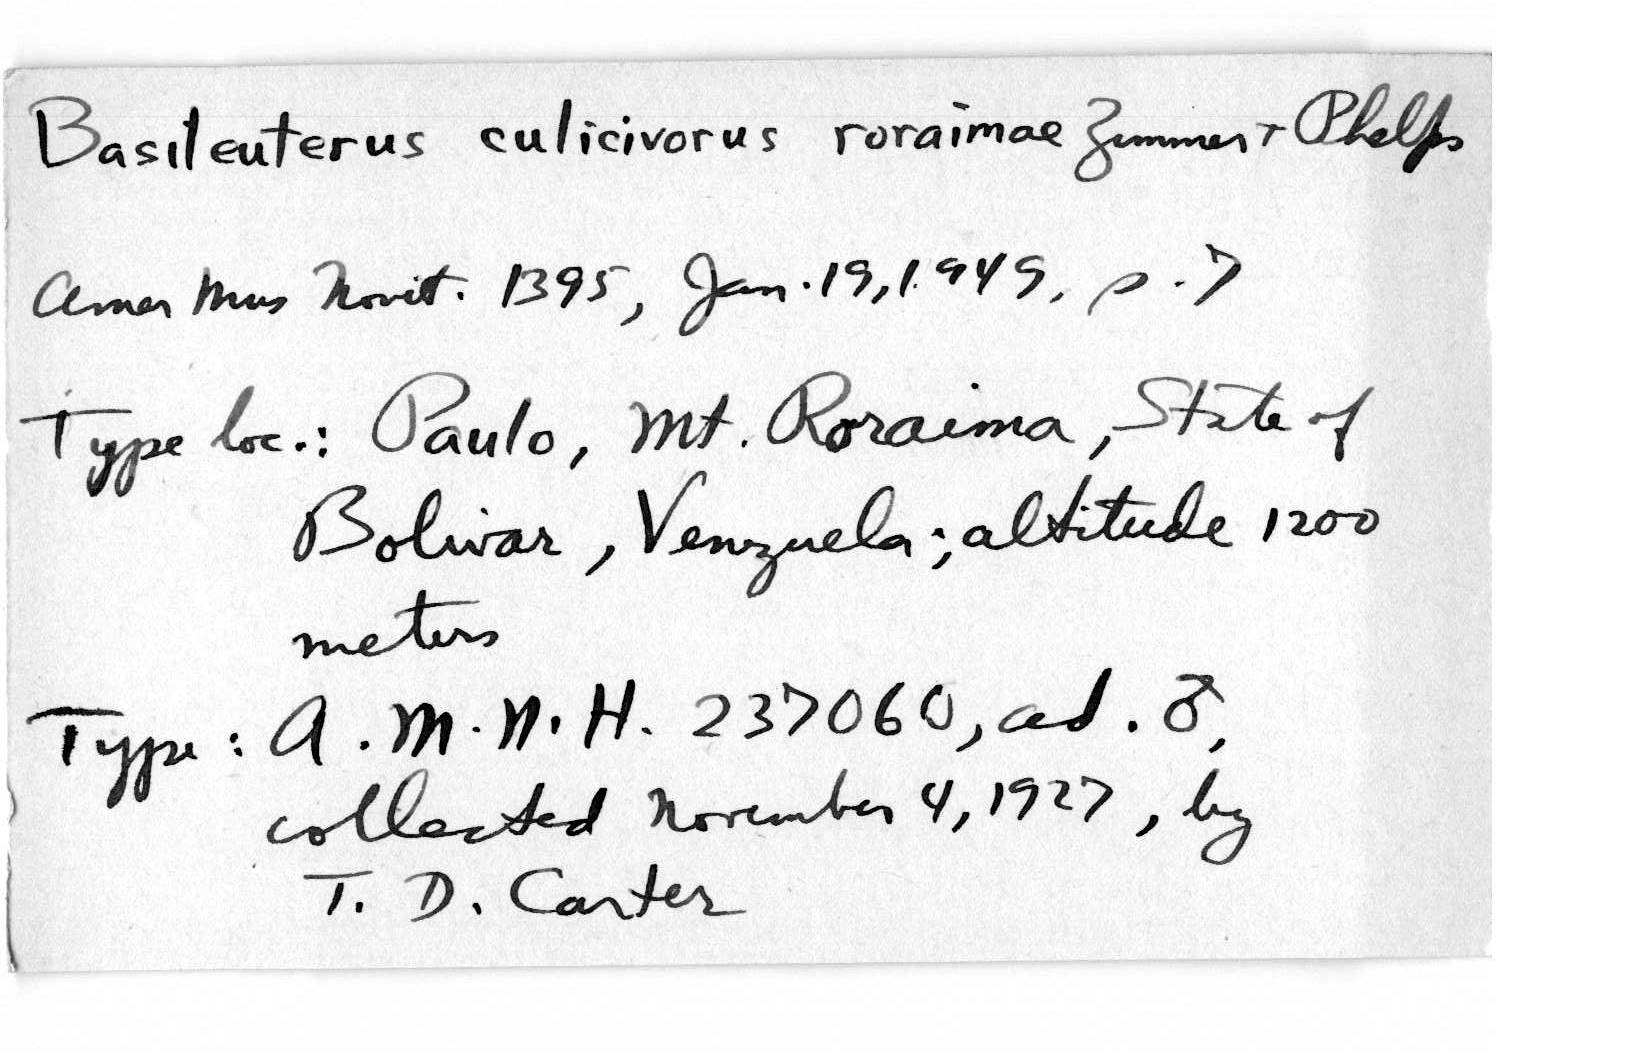 Basileuterus culicivorus roraimae Zimmer + Phelps
Amer Mus Novit. 1395, Jan. 19, 1949, p. 7
Type loc.: Paulo, Mt. Roraima, State of
Bolivar, Venezuela; altitude 1200
meters
Type: A.M.N.H. 237060, ad. ♂,
collected November 4, 1927, by
T. D. Carter